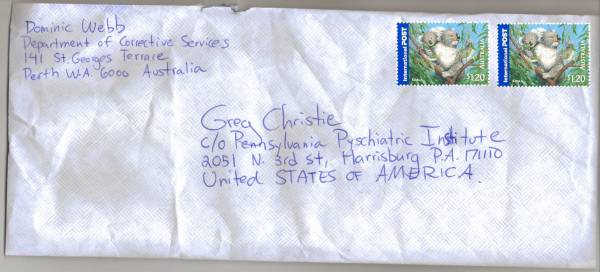 Dominic Webb
Department of Corrective Services
141 St. Georges Terrace
Perth W.A. 6000 Australia
International POST
AUSTRALIA
$1.20
International POST
AUSTRALIA
$1.20
Greg Christie
c/o Pennsylvania Pyschiatric Institute
2051 N. 3rd st, Harrisburg P.A. 171110
United STATES OF AMERICA.